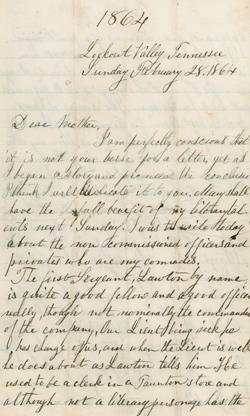 1864
Lookout Valley, Tennessee
Sunday February 28. 1864
Dear Mother,
I am perfectly conscious that
it is not your turn for a letter, yet as
I began a story and promised the conclusion
I think I will dedicate it to you. Mary shall
have the full benefit of my literary tal-
ents next Sunday. I was to write today
about the non commissioned officers and
privates who are my comrades.
The first Sergeant, Lawton by name
is quite a good fellow and a good officer
really, though not nominally the commander
of the company, Our Lieut being sick he
has charge of us, and when the Lieut is well
he does about as Lawton tells him. He
used to be a clerk in a Taunton store and
although not a literary personage has the